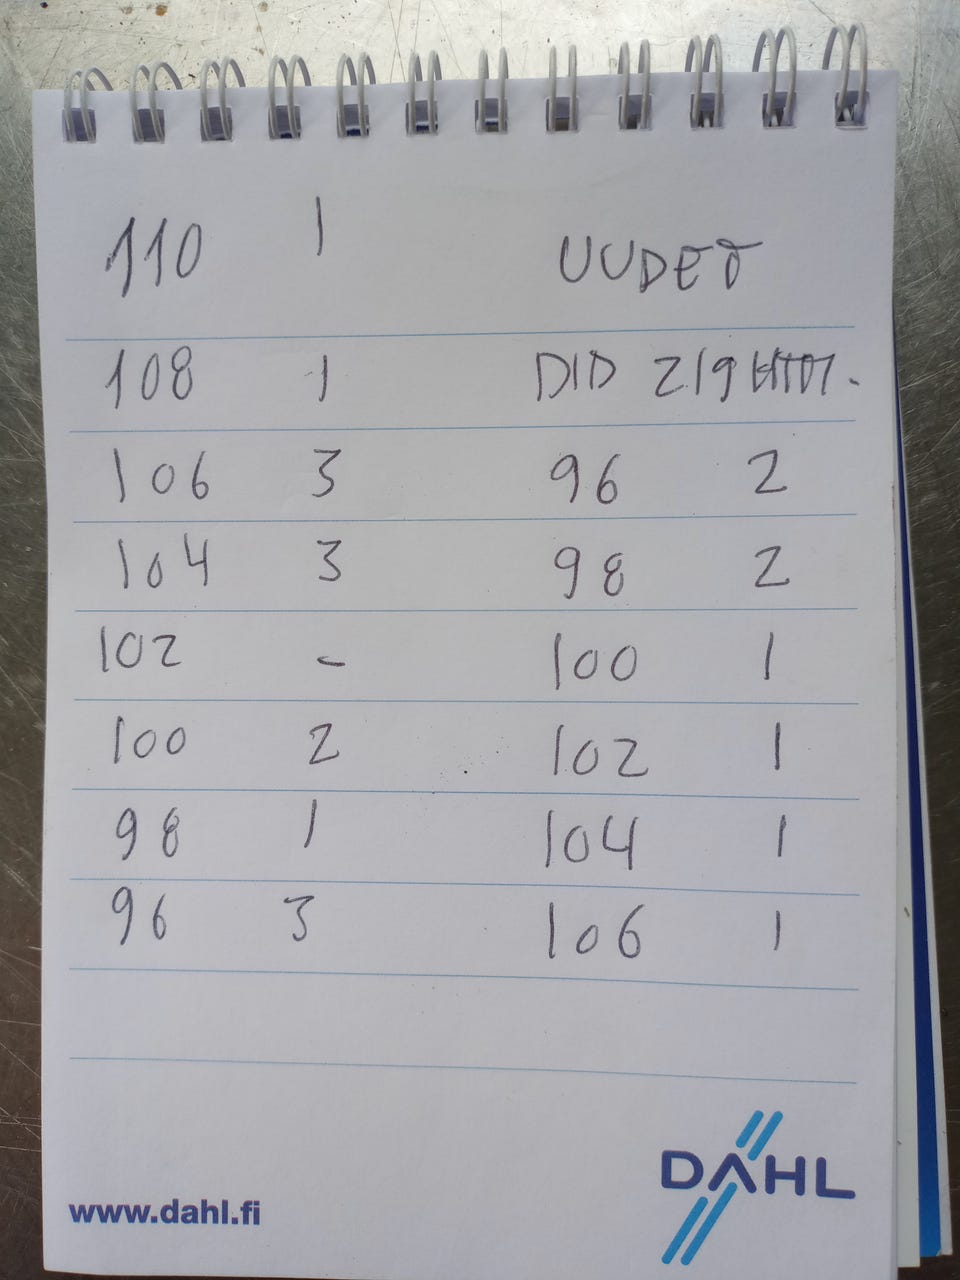 110 1 UUDET
108 1 DID 219
106 3 96 2
104 3 98 2
102 - 100 1
100 2 102 1
98 1 104 1
96 3 106 1
DAHL
www.dahl.fi